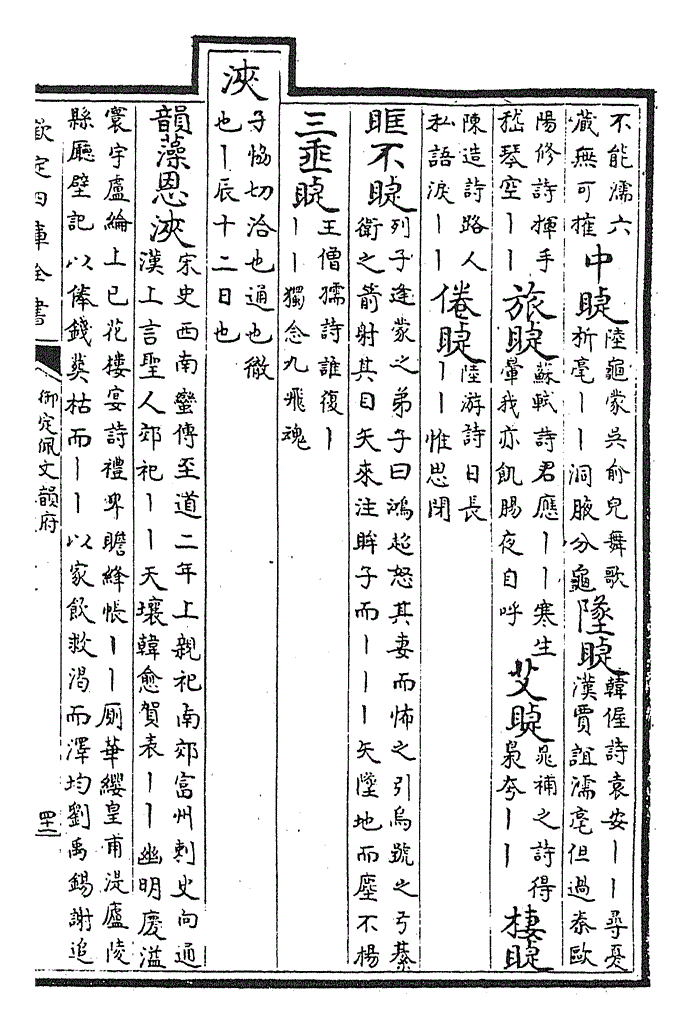 不能濡六
嵗無可摧
中睫
陸龜蒙吳俞兒舞歌
析毫丨丨洞腋分龜
墜睫
韓偓詩袁安丨丨尋憂
漢賈誼濡毫但過秦歐
陽修詩揮手
嵇琴空丨丨
旅睫
蘇軾詩君應丨丨寒生
暈我亦飢腸夜自呼
艾睫
晁補之詩得
梟夸丨丨
棲睫
陳造詩路人
私語淚丨丨
倦睫
陸游詩日長
丨丨惟思閉
眶不睫
列子逢蒙之弟子曰鴻超怒其妻而怖之引烏號之弓綦
衛之箭射其目矢來注眸子而丨丨丨矢墜地而塵不揚
三埀睫
王僧孺詩誰復丨
丨丨獨念九飛魂
浹
子協切洽也通也徹
也丨辰十二日也
韻藻恩浹
宋史西南蠻傳至道二年上親祀南郊富州刺史向通
漢上言聖人郊祀丨丨天壤韓愈賀表丨丨幽明慶溢
寰宇盧綸上巳花樓宴詩禮畢瞻絳帳丨丨厠華纓皇甫湜廬陵
縣廳壁記以俸錢葬枯而丨丨以家飲救渴而澤均劉禹錫謝追
欽定四庫全書
御定佩文韻府
四十二